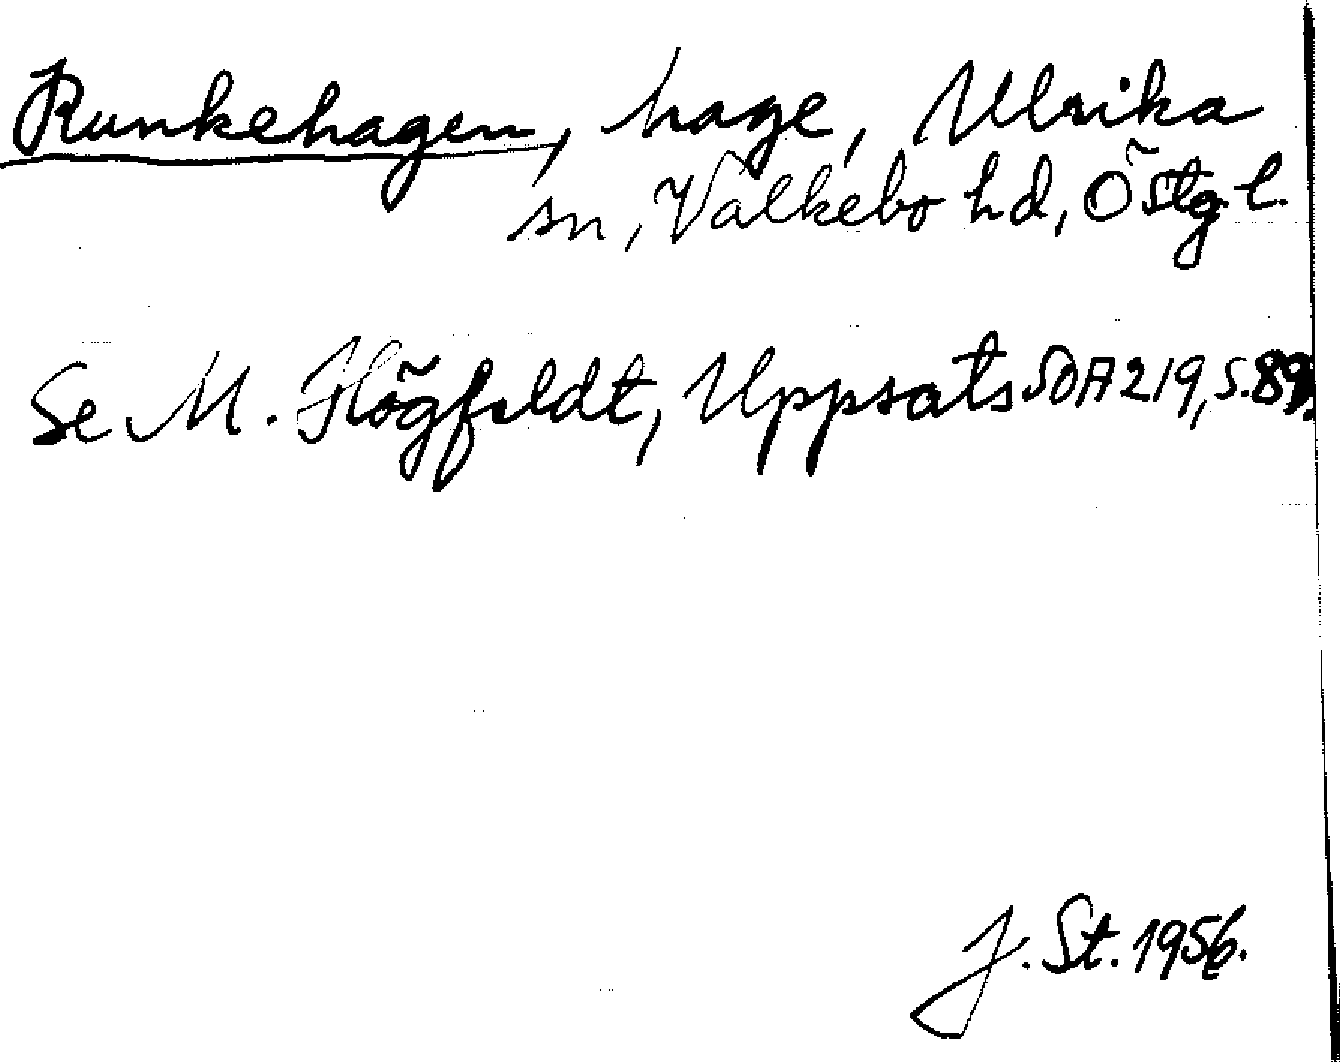 Runkehagen, hage, Ulrika
sn, Valkebo hd, Östg. l.
Se M. Högfeldt, Uppsats SOA 219, s. 89.
J. St. 1956.